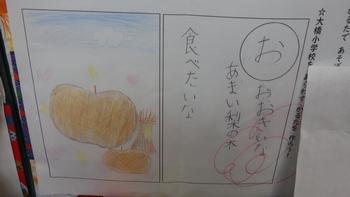 ☆大橋小学校を
お
おおきいな
あまい梨の木
食べたいな